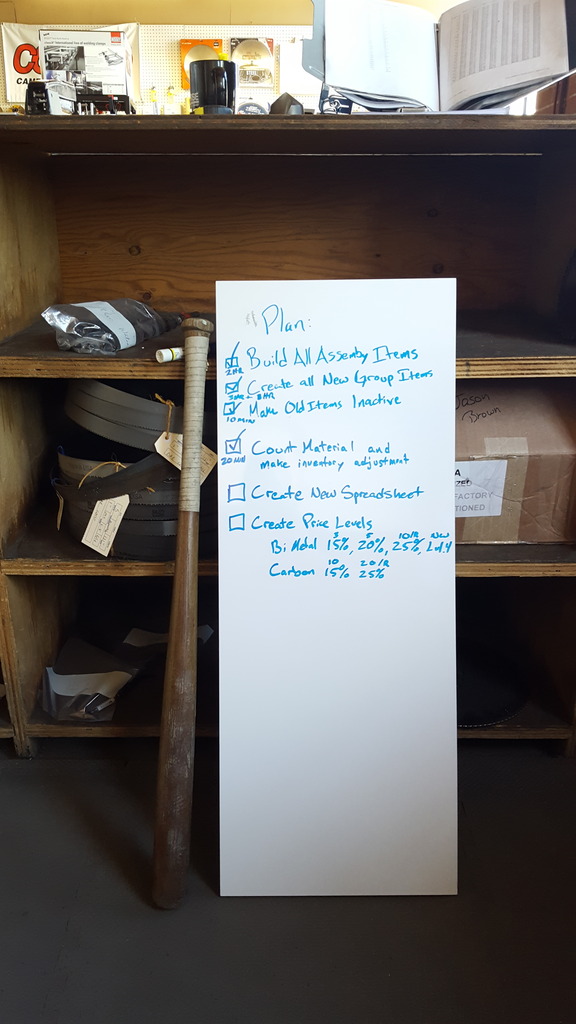 Plan:
Build All Assembly Items
2 HR
Create all New Group Items
3HR - 8HR
Make Old Items Inactive
10 min
Count Material and
20 Min
make inventory adjustment
Create New Spreadsheet
Create Price Levels
3 5 10/R New
Bi Metal 15%, 20%, 25%,
10 20/R
Carbon 15% 25%
Jason
Brown
FACTORY
TIONED